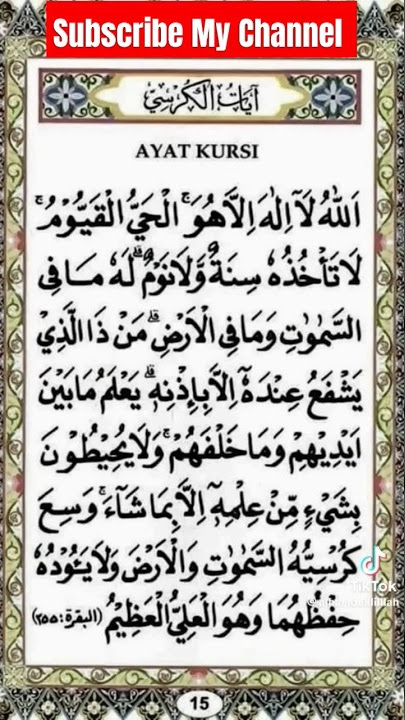 Subscribe My Channel
آيات الكرسي
AYAT KURSI
اَللّٰهُ لَآ اِلٰهَ اِلَّا هُوَۚ اَلْحَيُّ الْقَيُّوْمُ ۚ
لَا تَأْخُذُهٗ سِنَةٌ وَّلَا نَوْمٌ ۗ لَهٗ مَا فِى
السَّمٰوٰتِ وَمَا فِى الْاَرْضِ ۗ مَنْ ذَا الَّذِيْ
يَشْفَعُ عِنْدَهٗٓ اِلَّا بِاِذْنِهٖ ۗ يَعْلَمُ مَا بَيْنَ
اَيْدِيْهِمْ وَمَا خَلْفَهُمْ ۚ وَلَا يُحِيْطُوْنَ
بِشَيْءٍ مِّنْ عِلْمِهٖٓ اِلَّا بِمَا شَآءَ ۚ وَسِعَ
كُرْسِيُّهُ السَّمٰوٰتِ وَالْاَرْضَ وَلَا يَـُٔوْدُهٗ
حِفْظُهُمَا وَهُوَ الْعَلِيُّ الْعَظِيْمُ (البقرة: ٢٥٥)
TikTok
15